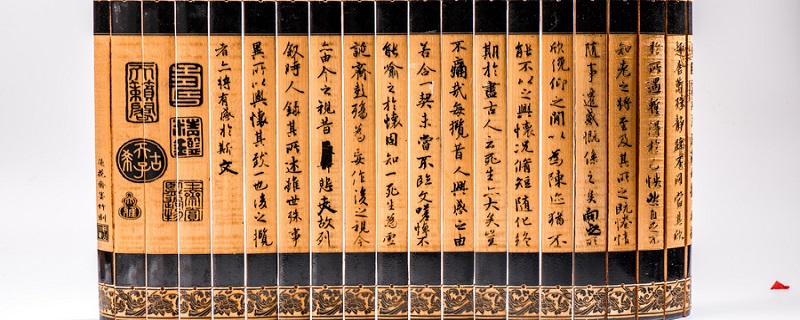 趣舍萬殊靜躁不同當其欣
於所遇暫得於己快然自足不
知老之將至及其所之既惓情
隨事遷感慨係之矣向之所
欣俛仰之間以為陳迹猶不
能不以之興懷況脩短隨化終
期於盡古人云死生亦大矣豈
不痛哉每攬昔人興感之由
若合一契未嘗不臨文嗟悼不
能喻之於懷固知一死生為虛
誕齊彭殤為妄作後之視今
亦由今之視昔悲夫故列
敘時人錄其所述雖世殊事
異所以興懷其致一也後之攬
者亦將有感於斯文
古希天子